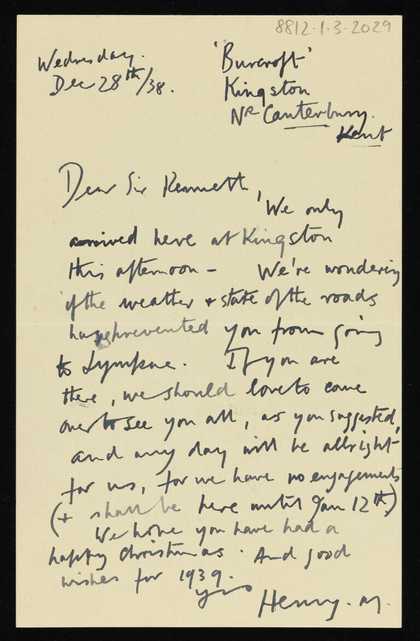 8812-1-3-2029
Wednesday.
Dec 28th/38.
'Burcroft'
Kingston
Nr Canterbury.
Kent
Dear Sir Kenneth,
We only
arrived here at Kingston
this afternoon - We're wondering
if the weather + state of the roads
has prevented you from going
to Lympne. If you are
there, we should love to come
over to see you all, as you suggested,
and any day will be allright
for us, for we have no engagements
(+ shall be here until Jan 12th.)
We hope you have had a
happy Christmas. And good
wishes for 1939.
Yrs
Henry. M.